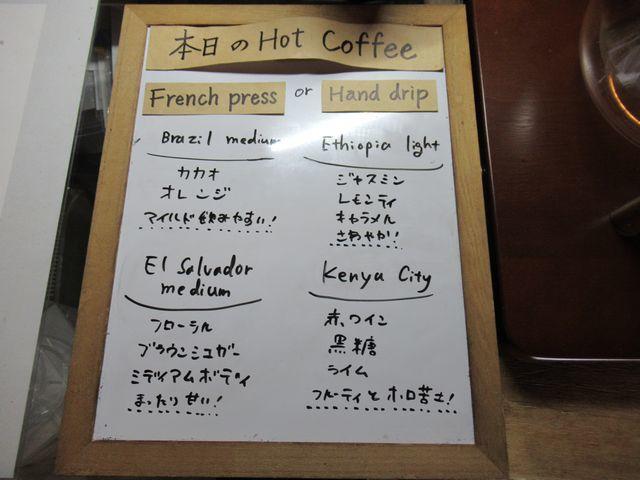 本日のHot Coffee
French press or Hand drip
Brazil medium
カカオ
オレンジ
マイルド飲みやすい!
Ethiopia light
ジャスミン
レモンティ
キャラメル
さわやか!
El Salvador
medium
フローラル
ブラウンシュガー
ミディアムボディ
まったり せい!
Kenya City
赤ワイン
黒糖
ライム
フルーティとホロ苦さ!